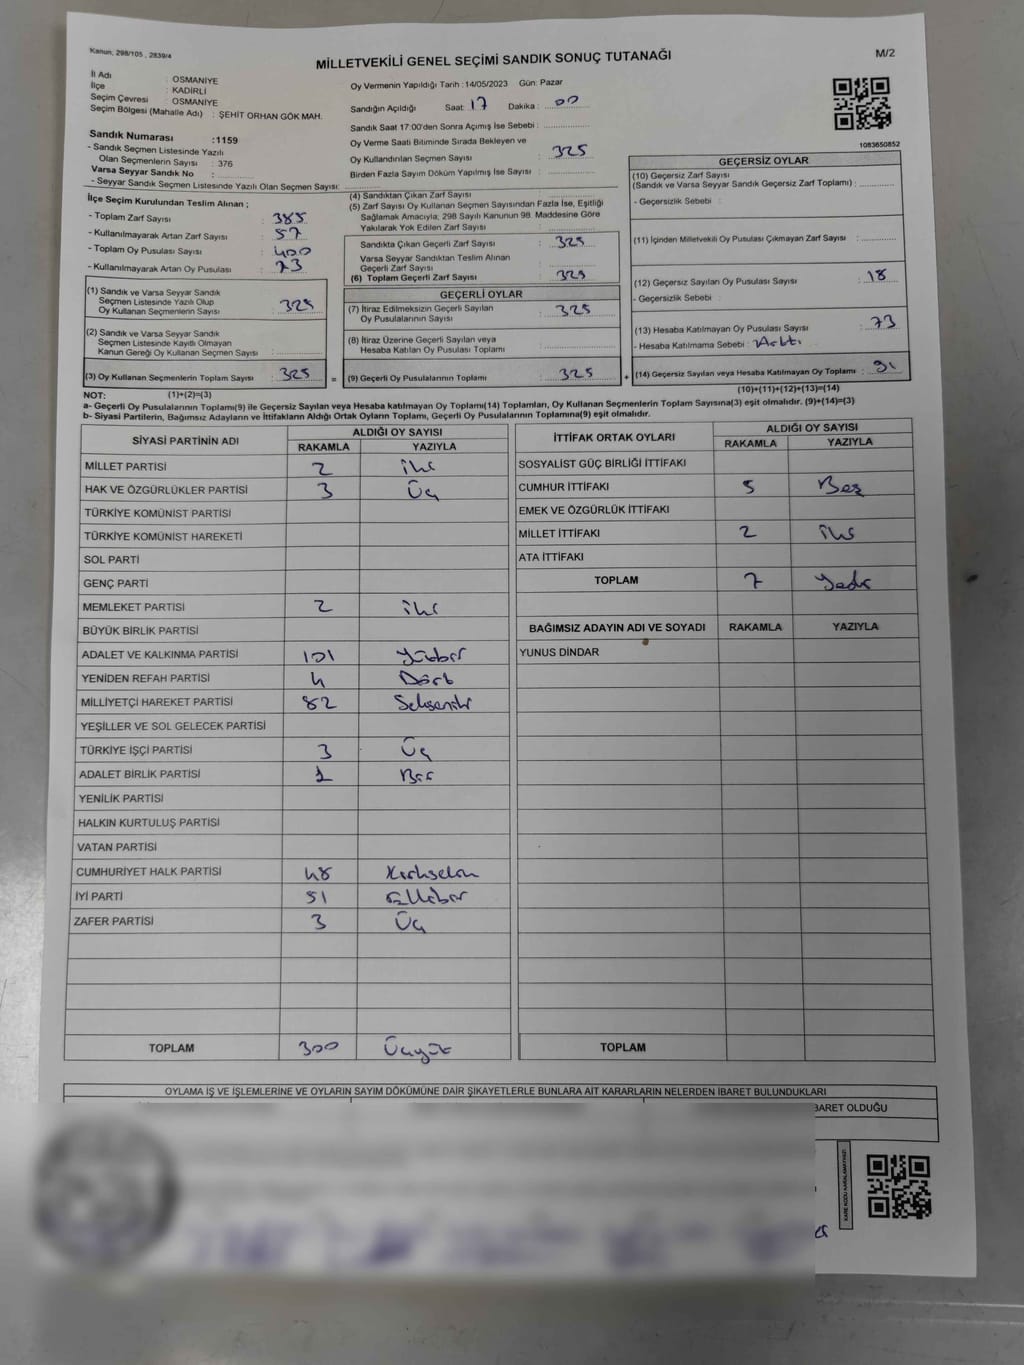 Kanun: 298/105 , 2839/4
MİLLETVEKİLİ GENEL SEÇİMİ SANDIK SONUÇ TUTANAĞI
M/2
İl Adı : OSMANİYE
İlçe : KADİRLİ
Seçim Çevresi : OSMANİYE
Seçim Bölgesi (Mahalle Adı) : ŞEHİT ORHAN GÖK MAH.
Sandık Numarası :1159
- Sandık Seçmen Listesinde Yazılı
Olan Seçmenlerin Sayısı : 376
Varsa Seyyar Sandık No :
- Seyyar Sandık Seçmen Listesinde Yazılı Olan Seçmen Sayısı:
Oy Vermenin Yapıldığı Tarih :14/05/2023 Gün: Pazar
Sandığın Açıldığı Saat: 17 Dakika : 00
Sandık Saat 17:00'den Sonra Açımış İse Sebebi :
Oy Verme Saati Bitiminde Sırada Bekleyen ve
Oy Kullandırılan Seçmen Sayısı : 325
Birden Fazla Sayım Döküm Yapılmış İse Sayısı :
1083650852
İlçe Seçim Kurulundan Teslim Alınan ;
- Toplam Zarf Sayısı : 385
- Kullanılmayarak Artan Zarf Sayısı : 57
- Toplam Oy Pusulası Sayısı : 400
- Kullanılmayarak Artan Oy Pusulası : 73
(1) Sandık ve Varsa Seyyar Sandık
Seçmen Listesinde Yazılı Olup
Oy Kullanan Seçmenlerin Sayısı : 325
(2) Sandık ve Varsa Seyyar Sandık
Seçmen Listesinde Kayıtlı Olmayan
Kanun Gereği Oy Kullanan Seçmen Sayısı :
(3) Oy Kullanan Seçmenlerin Toplam Sayısı : 325 =
(4) Sandıktan Çıkan Zarf Sayısı
(5) Zarf Sayısı Oy Kullanan Seçmen Sayısından Fazla İse, Eşitliği
Sağlamak Amacıyla; 298 Sayılı Kanunun 98. Maddesine Göre
Yakılarak Yok Edilen Zarf Sayısı :
Sandıkta Çıkan Geçerli Zarf Sayısı : 325
Varsa Seyyar Sandıktan Teslim Alınan
Geçerli Zarf Sayısı :
(6) Toplam Geçerli Zarf Sayısı : 325
GEÇERLİ OYLAR
(7) İtiraz Edilmeksizin Geçerli Sayılan
Oy Pusulalarının Sayısı : 325
(8) İtiraz Üzerine Geçerli Sayılan veya
Hesaba Katılan Oy Pusulası Toplamı :
(9) Geçerli Oy Pusulalarının Toplamı : 325 +
GEÇERSİZ OYLAR
(10) Geçersiz Zarf Sayısı
(Sandık ve Varsa Seyyar Sandık Geçersiz Zarf Toplamı) :
- Geçersizlik Sebebi :
(11) İçinden Milletvekili Oy Pusulası Çıkmayan Zarf Sayısı :
(12) Geçersiz Sayılan Oy Pusulası Sayısı : 18
- Geçersizlik Sebebi :
(13) Hesaba Katılmayan Oy Pusulası Sayısı : 73
- Hesaba Katılmama Sebebi : Arttı
(14) Geçersiz Sayılan veya Hesaba Katılmayan Oy Toplamı : 91
NOT: (1)+(2)=(3) (10)+(11)+(12)+(13)=(14)
a- Geçerli Oy Pusulalarının Toplamı(9) ile Geçersiz Sayılan veya Hesaba katılmayan Oy Toplamı(14) Toplamları, Oy Kullanan Seçmenlerin Toplam Sayısına(3) eşit olmalıdır. (9)+(14)=(3)
b- Siyasi Partilerin, Bağımsız Adayların ve İttifakların Aldığı Ortak Oyların Toplamı, Geçerli Oy Pusulalarının Toplamına(9) eşit olmalıdır.
SİYASİ PARTİNİN ADI ALDIĞI OY SAYISI
RAKAMLA YAZIYLA
MİLLET PARTİSİ 2 İki
HAK VE ÖZGÜRLÜKLER PARTİSİ 3 Üç
TÜRKİYE KOMÜNİST PARTİSİ
TÜRKİYE KOMÜNİST HAREKETİ
SOL PARTİ
GENÇ PARTİ
MEMLEKET PARTİSİ 2 İki
BÜYÜK BİRLİK PARTİSİ
ADALET VE KALKINMA PARTİSİ 101 Yüzbir
YENİDEN REFAH PARTİSİ 4 Dört
MİLLİYETÇİ HAREKET PARTİSİ 82 Sekseniki
YEŞİLLER VE SOL GELECEK PARTİSİ
TÜRKİYE İŞÇİ PARTİSİ 3 Üç
ADALET BİRLİK PARTİSİ 1 Bir
YENİLİK PARTİSİ
HALKIN KURTULUŞ PARTİSİ
VATAN PARTİSİ
CUMHURİYET HALK PARTİSİ 48 Kırksekiz
İYİ PARTİ 51 Ellibir
ZAFER PARTİSİ 3 Üç
TOPLAM 300 Üçyüz
İTTİFAK ORTAK OYLARI ALDIĞI OY SAYISI
RAKAMLA YAZIYLA
SOSYALİST GÜÇ BİRLİĞİ İTTİFAKI
CUMHUR İTTİFAKI 5 Beş
EMEK VE ÖZGÜRLÜK İTTİFAKI
MİLLET İTTİFAKI 2 İki
ATA İTTİFAKI
TOPLAM 7 Yedi
BAĞIMSIZ ADAYIN ADI VE SOYADI RAKAMLA YAZIYLA
YUNUS DİNDAR
TOPLAM
OYLAMA İŞ VE İŞLEMLERİNE VE OYLARIN SAYIM DÖKÜMÜNE DAİR ŞİKAYETLERLE BUNLARA AİT KARARLARIN NELERDEN İBARET BULUNDUKLARI
BARET OLDUĞU